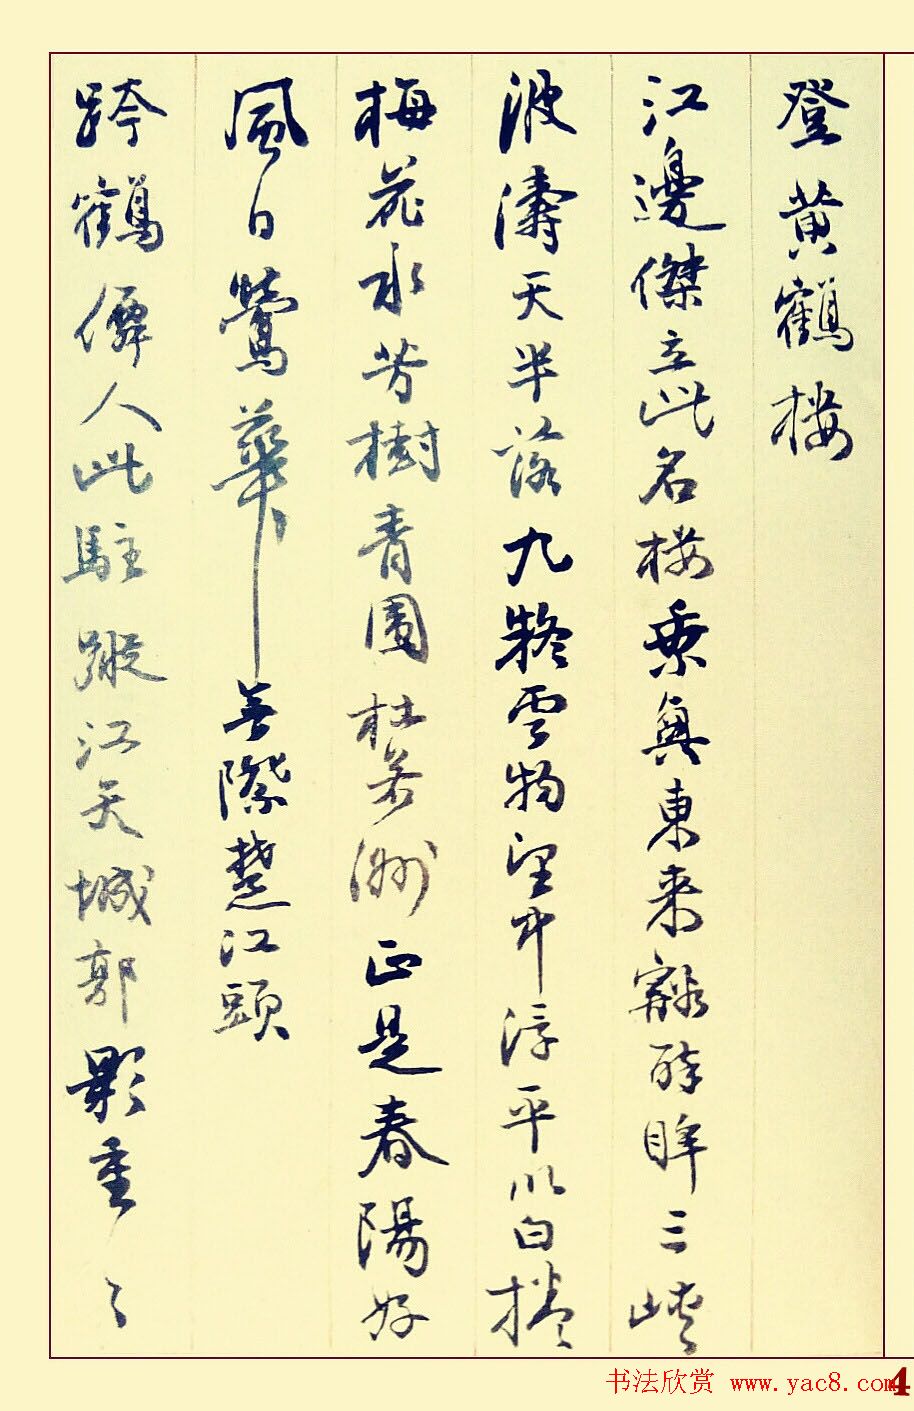 登黄鶴樓
江邊傑立此名樓乘興東來豁醉眸三峽
波濤天半落九疑雲物望中浮平川白捲
梅花水芳樹青圍杜若洲正是春陽好
風日鶯華無際楚江頭
跨鶴僊人此駐蹤江天城郭影重々
书法欣赏 www.yac8.com
4